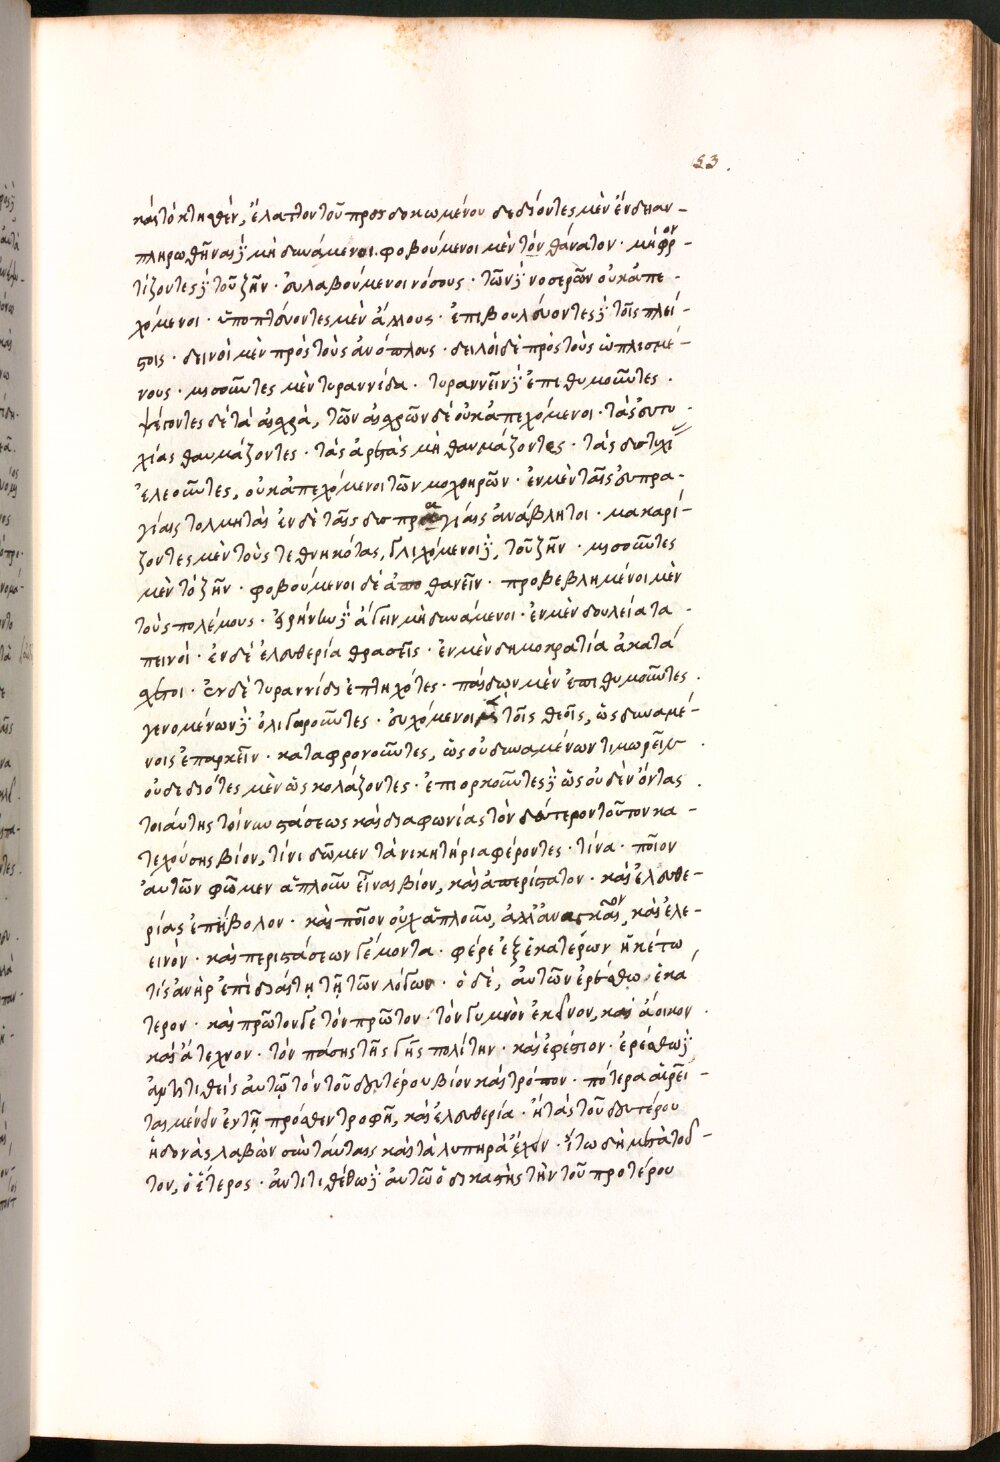 53.
καὶ τὸ κτηθὲν, ἔλαττον τοῦ προσδοκωμένου δεδιότες μὲν ἔνδειαν-
πληρωθῆναι δὲ μὴ δυνάμενοι. φοβούμενοι μὲν τὸν θάνατον · μὴ φρον-
τίζοντες δὲ τοῦ ζῆν · εὐλαβούμενοι νόσους · τῶν δὲ νοσερῶν οὐκ ἀπε-
χόμενοι · ὑποπτεύοντες μὲν ἄλλους · ἐπιβουλεύοντες δὲ τοῖς πλεί-
στοις · δεινοὶ μὲν πρὸς τοὺς ἀνόπλους · δειλοὶ δὲ πρὸς τοὺς ὡπλισμέ-
νους · μισοῦντες μὲν τυραννίδα · τυραννεῖν δὲ ἐπιθυμοῦντες ·
ψέγοντες δὲ τὰ αἰσχρὰ, τῶν αἰσχρῶν δὲ οὐκ ἀπεχόμενοι · τὰς εὐτυ-
χίας θαυμάζοντες · τὰς ἀρετὰς μὴ θαυμάζοντες · τὰς δυστυχίας
ἐλεοῦντες, οὐκ ἀπεχόμενοι τῶν μοχθηρῶν · ἐν μὲν ταῖς εὐπρα-
γίαις τολμηταὶ ἐν δὲ ταῖς δυσπραγίαις ἀνάβλητοι · μακαρί-
ζοντες μὲν τοὺς τεθνηκότας, γλιχόμενοι δὲ, τοῦ ζῆν · μισοῦντες
μὲν τὸ ζῆν · φοβούμενοι δὲ ἀποθανεῖν · προβεβλημένοι μὲν
τοὺς πολέμους · εἰρήνην δὲ ἄγειν μὴ δυνάμενοι · ἐν μὲν δουλεία τα-
πεινοὶ · ἐν δὲ ἐλευθερία θρασεῖς · ἐν μὲν δημοκρατία ἀκατά
σχετοι · ἐν δὲ τυραννίδι ἐπτηχότες · παίδων μὲν ἐπιθυμοῦντες .
γενομένων δὲ ὀλιγωροῦντες · εὐχόμενοι τοῖς θεοῖς, ὡς δυναμέ-
νοις ἐπαρκεῖν · καταφρονοῦντες, ὡς οὐ δυναμένων τιμωρεῖν .
οὐ δεδιότες μὲν ὡς κολάζοντες · ἐπιορκοῦντες δὲ ὡς οὐδὲν ὄντας .
τοιαύτης τοίνυν στάσεως καὶ διαφωνίας τὸν δεύτερον τοῦτον κα-
τεχούσης βίον, τίνι δῶμεν τὰ νικητήρια φέροντες · τίνα · ποῖον
αὐτῶν φῶμεν ἁπλοῦν εἶναι βίον, καὶ ἀπερίστατον · καὶ ἐλευθε-
ρίας ἐπήβολον · καὶ ποῖον οὐχ ἁπλοῦν, ἀλλ' ἀναγκαῖον, καὶ ἐλε-
εινὸν · καὶ περιστάσεων γέμοντα · φέρε ἐξ ἑκατέρων ἡκέτω
τὶς ἀνὴρ ἐπὶ διαιτητῇ τῶν λόγων · ὁ δὲ, αὐτῶν ἐρέσθω ἑκά
τερον · καὶ πρῶτον γε τὸν πρῶτον · τὸν γυμνὸν ἐκεῖνον, καὶ ἄοικον .
καὶ ἄτεχνον · τὸν πάσης τῆς γῆς πολίτην · καὶ ἐφέστιον · ἐρέσθω δὲ
ἀντιτιθεὶς αὐτῷ τὸν τοῦ δευτέρου βίον καὶ τρόπον · πότερα αἱρεῖ-
ται μένειν ἐν τῇ πρόσθεν τροφῇ, καὶ ἐλευθερία · ἢ τὰς τοῦ δευτέρου
ἡδονὰς λαβὼν σὺν ταύταις καὶ τὰ λυπηρὰ ἔχειν · ἴτω δὴ μετὰ τοῦ-
τον, ὁ ἕτερος · ἀντιτιθέσθω δὲ αὐτῶ ὁ δικαστὴς τὴν τοῦ προτέρου